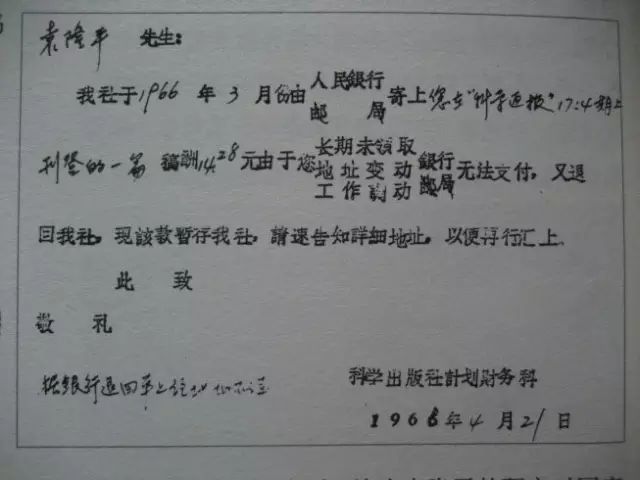 袁隆平 先生:
我社于1966年3月份由人民銀行
邮局 寄上您在"科学通报"17:4期上
刊登的一篇稿酬14.28元由于您長期未領取
地址变动 銀行
工作調动 邮局 无法支付，又退
回我社，现該款暂存我社，請速告知詳細地址，以便再行汇上。
此致
敬礼
科学出版社計划財务科
1966年4月21日